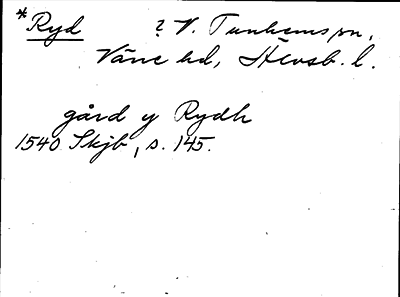 *Ryd ? V. Tunhems sn,
Väne hd, Älvsb. l.
gård y Rydh
1540 Skjb, s. 145.